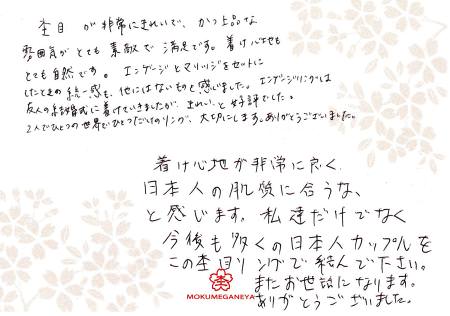 杢目が非常にきれいで、かつ上品な
雰囲気がとても素敵で満足です。着け心地も
とても自然です。エンゲージとマリッジをセットに
したときの統一感も、他にはないものと感じました。エンゲージリングは
友人の結婚式に着けていきましたが、きれいと好評でした。
2人でひとつの世界でひとつだけのリング、大切にします。ありがとうございました。
着け心地が非常に良く、
日本人の肌質に合うな、
と感じます。私達だけでなく
今後も多くの日本人カップルを
この杢目リングで結んで下さい。
またお世話になります。
ありがとうございました。
MOKUMEGANEYA